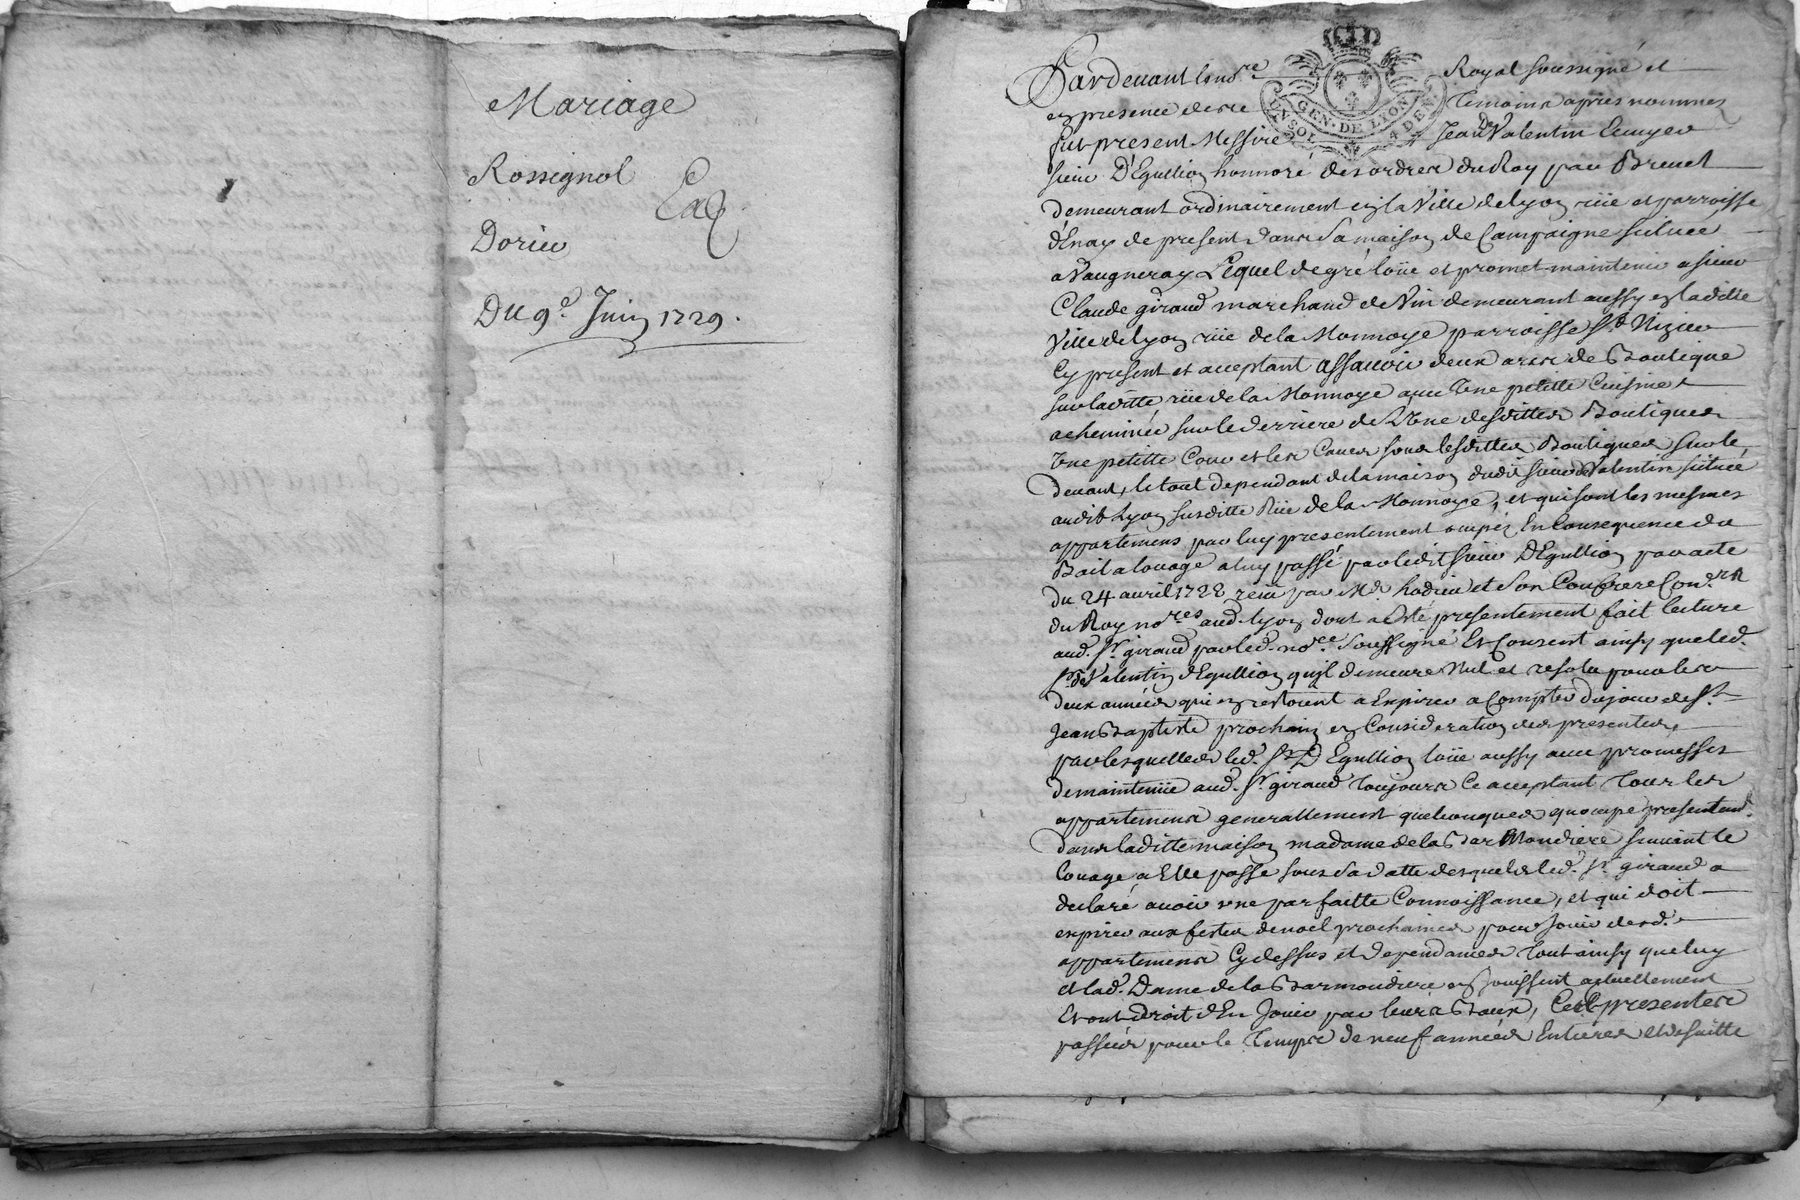 Mariage
Rossignol
Dorieu
Du 9e. Juin 1729.
Pardevant le no.re Royal soussigné et
en presence de temoins apres nommes
fut present Messire Jean de Valentin Ecuyer
sieur D'Egullion honnoré des ordres du Roy par Brevet
demeurant ordinairement en la Ville de Lyon rüe et parroisse
d'Enay de present dans sa maison de Campaigne scituée
a Vaugneray Lequel de gré loüe et promet maintenir a sieur
Claude giraud marchand de Vin demeurant aussy en laditte
Ville de Lyon rüe de la Monnoye parroisse St. Nizier
Cy present et acceptant assavoir deux arcs de Boutique
sur laditte rüe de la Monnoye avec Une petitte Cuisine
a cheminée sur le derriere de L'Une desdittes Boutiques
Une petitte Cour et les Caves sous lesdittes Boutiques sur le
devant, le tout dependant de la maison dudit sieur de Valentin scituée
audit Lyon susditte Rüe de la Monnoye, et qui sont les mesmes
appartemens par luy presentement occupez En Consequence du
Bail a louage a luy passé par ledit sieur D'Egullion par acte
du 24 avril 1722 receu par Me. hodieu et son Confrere Con.ers
du Roy no.res aud. Lyon dont a Esté presentement fait lecture
aud. Sr. giraud par led. no.re soussigné Et Consent ainsy que led.
Sr. de Valentin d'Egullion qu'il demeure Nul et resolu pour les
deux années qui en restoient a Expirer a Compter du jour de St.
Jean Baptiste prochain en Consideration des presentes,
par lesquelles led. Sr. D'Egullion loüe aussy avec promesses
de maintenüe aud. Sr. giraud toujours Ce acceptant Tous les
appartemens generallement quelconques qu'occupe presentem.t
dans laditte maison madame de la Barmondiere suivant le
louage a Elle passé sous sa datte desquels led. Sr. giraud a
declaré avoir une parfaitte Connoissance, et qui doit
expirer aux festes de noel prochaines pour Jouir desd.
appartemens Cy dessus et dependances Tout ainsy que luy
et lad. Dame de la Barmondiere en Jouissent actuellement
Et ont droit d'En Jouir par leurs Baux, Ces presentes
passées pour le Temps de neuf années Entieres et de suitte